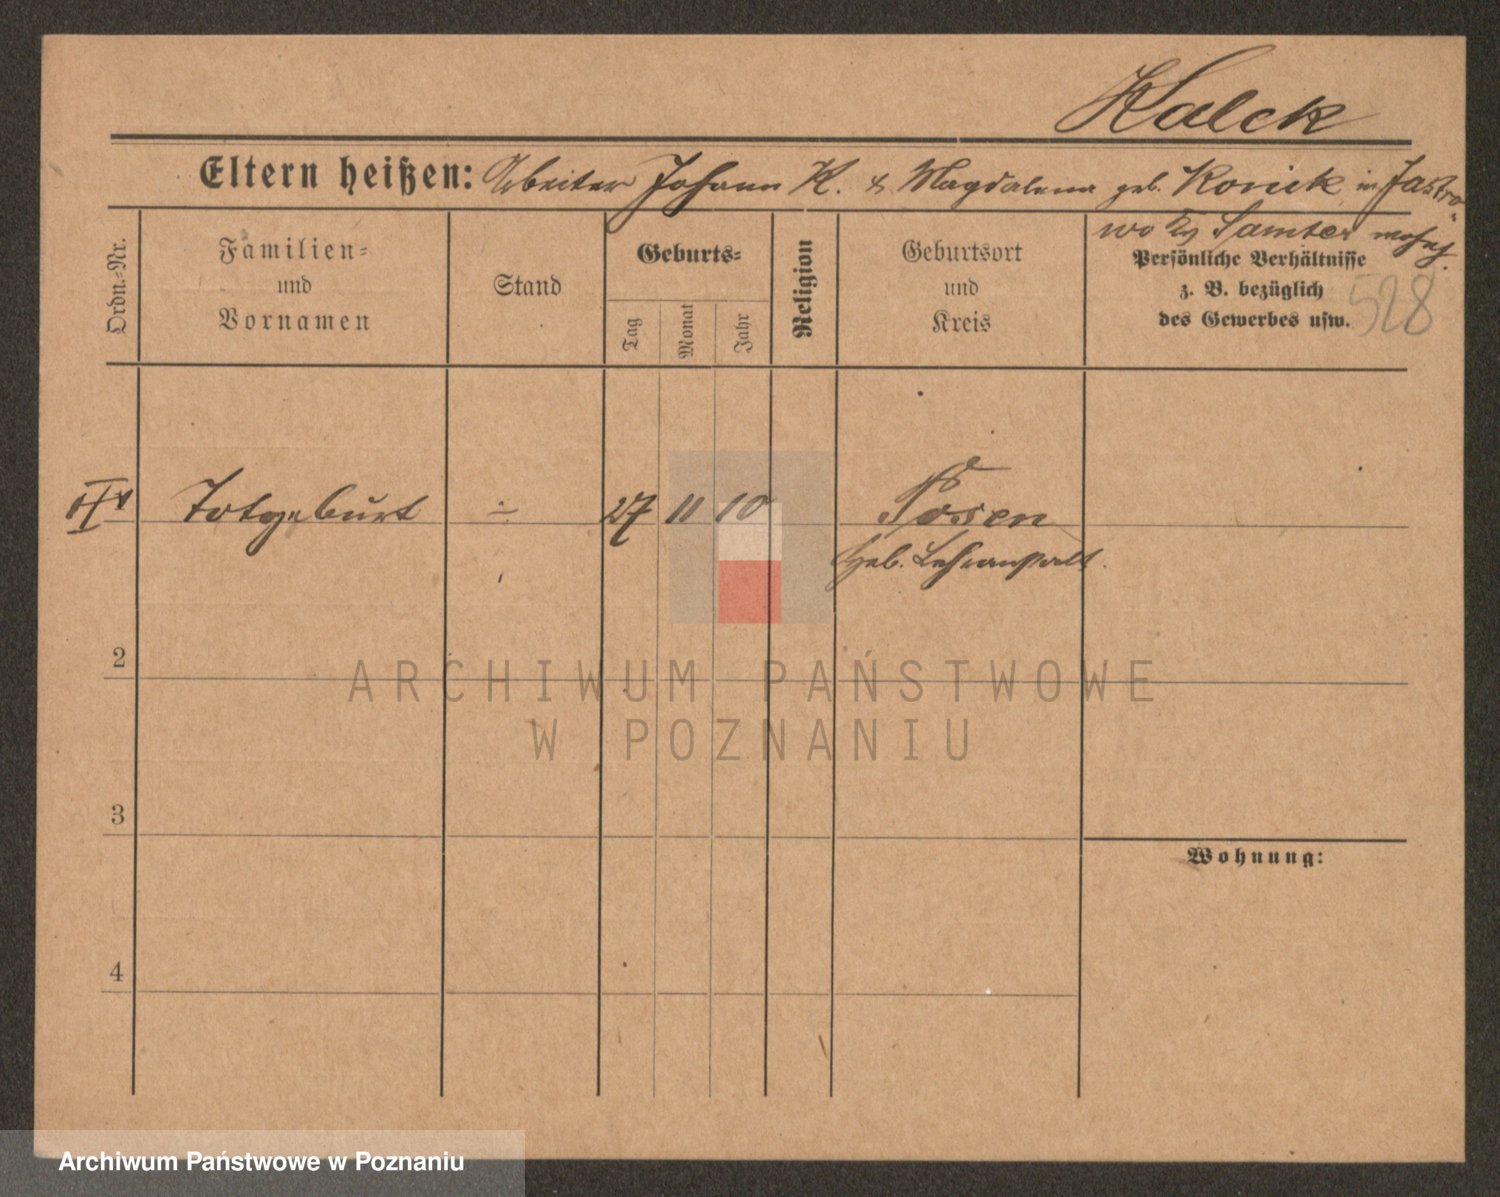 Kalck
Eltern heißen: Arbeiter Johann K. & Magdalena geb. Konick in Jastro-
wo Kr. Samter wohnh.
Ordn.-Nr.
Familien-
und
Vornamen
Stand
Geburts-
Tag
Monat
Jahr
Religion
Geburtsort
und
Kreis
Persönliche Verhältnisse
z. B. bezüglich
des Gewerbes usw.
528
Totgeburt ÷ 27 11 10 Posen
Heb. Lehranstalt.
2
3
4
Wohnung:
ARCHIWUM PAŃSTWOWE
W POZNANIU
Archiwum Państwowe w Poznaniu